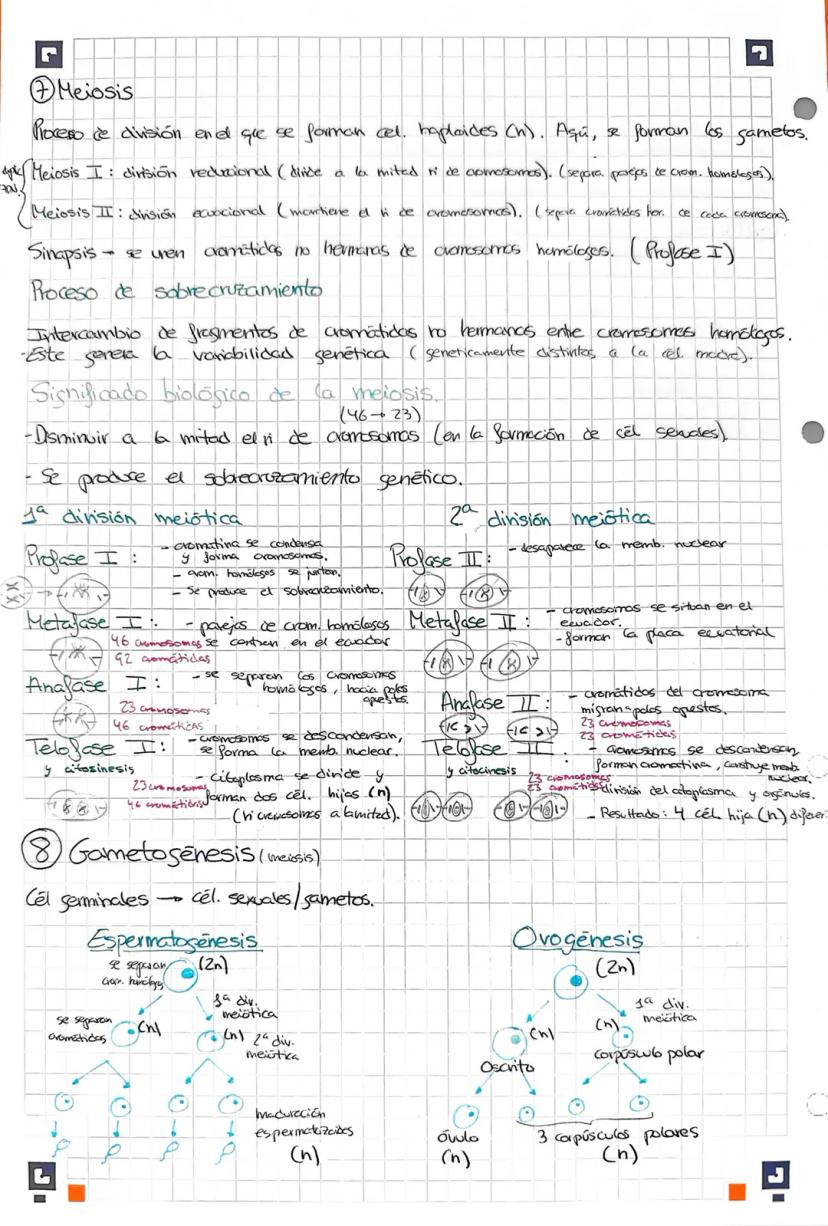 ⑦ Meiosis
Proceso de división en el que se forman cel. haploides (n). Aquí, se forman los gametos.
Meiosis I: división reduccional (divide a la mitad nº de cromosomas). (separa parejas de crom. homólogos).
Meiosis II: división ecuacional (mantiene el nº de cromosomas). (separa cromátidas her. de cada cromosoma).
Sinapsis → se unen cromátidas no hermanas de cromosomas homólogos. (Profase I)
Proceso de sobrecruzamiento
Intercambio de fragmentos de cromátidas no hermanas entre cromosomas homólogos.
-Este genera la variabilidad genética (geneticamente distintos a la cél. madre).
Significado biológico de la meiosis.
(46→23)
-Disminuir a la mitad el nº de cromosomas (en la formación de cél sexuales).
- Se produce el sobrecruzamiento genético.
1ª división meiótica
Profase I:
- cromatina se condensa
y forma cromosomas.
- crom. homólogos se juntan.
- Se produce el sobrecruzamiento.
Metafase I:
- parejas de crom. homólogos
se centran en el ecuador
46 cromosomas
92 cromátidas
Anafase I:
- se separan los cromosomas
homólogos, hacia polos
opuestos.
23 cromosomas
46 cromátidas
Telofase I:
y citosinesis
- cromosomas se descondensan,
se forma la memb. nuclear.
- citoplasma se divide y
forman dos cél. hijas (n)
(nº cromosomas a la mitad).
23 cromosomas
46 cromátidas
2ª división meiótica
Profase II:
- desaparece la memb. nuclear
Metafase II:
- cromosomas se situan en el
ecuador.
- forman la placa ecuatorial
Anafase II:
- cromátidas del cromosoma
migran a polos opuestos.
23 cromosomas
23 cromátidas
Telofase II
y citocinesis
- cromosomas se descondensan
forman cromatina, construye memb
nuclear.
23 cromosomas
23 cromátidas
- división del citoplasma y orgánulos.
- Resultado: 4 cél. hija (n) difieren
⑧ Gametogénesis (meiosis)
Cél germinales → cél. sexuales/gametos.
Espermatogénesis
se separan
crom. homólogos
(2n)
1ª div.
meiótica
se separan
cromátidas
(n)
(n)
2ª div.
meiótica
maduración
espermatozoides
(n)
Ovogénesis
(2n)
1ª div.
meiótica
(n)
(n)
Oocito
Corpúsculo polar
óvulo
(n)
3 corpúsculos polares
(n)